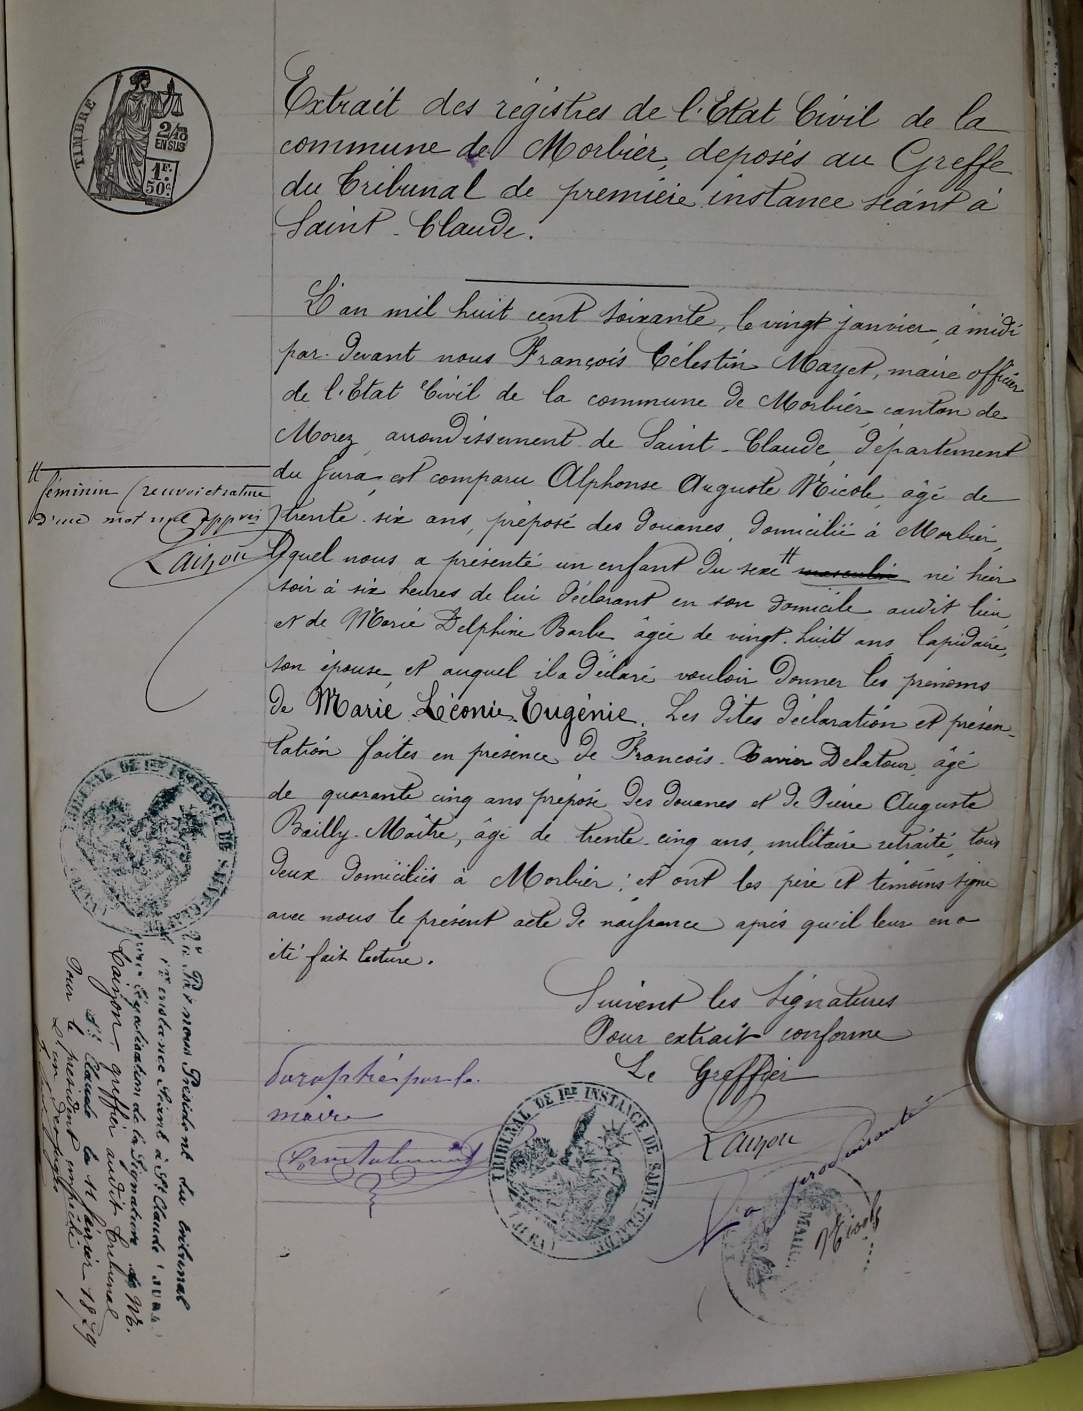 TIMBRE
2/10
EN SUS
1F.
50c.
Extrait des régistres de l'Etat Civil de la
commune de Morbier, deposés au Greffe
du Tribunal de première instance séant à
Saint-Claude.
L'an mil huit cent soixante, le vingt janvier, à midi
par-devant nous François Célestin Mayet, maire officier
de l'Etat Civil de la commune de Morbier canton de
Morez, arrondissement de Saint-Claude, département
du Jura, est comparu Alphonse Auguste Nicole, âgé de
trente-six ans, préposé des douanes, domicilié à Morbier,
lequel nous a présenté un enfant du sexe # masculin né hier
soir à six heures de lui déclarant en son domicile audit lieu,
et de Marie Delphine Barbe âgée de vingt-huit ans, lapidaire,
son épouse, et auquel il a déclaré vouloir donner les prénoms
de Marie-Léonie-Eugénie. Les dites déclaration et présen-
tation faites en présence de François-Xavier Delatour, âgé
de quarante cinq ans préposé des douanes et de Pierre Auguste
Bailly-Maître, âgé de trente-cinq ans, militaire retraité, tous
deux domiciliés à Morbier; et ont les père et témoins signé
avec nous le présent acte de naissance après qu'il leur en a
été fait lecture.
# féminin / renvoi et rature
d'un mot nul approuvés
Laizon
Suivent les signatures
Pour extrait conforme
Le Greffier
Laizon
Paraphé par le
maire
La produisante
Nicole
TRIBUNAL DE 1RE INSTANCE DE SAINT-CLAUDE
(JURA)
MAIRIE
TRIBUNAL DE 1RE INSTANCE DE SAINT-CLAUDE
(JURA)
Vu Par nous Président du tribunal
de 1re instance séant à St Claude (JURA)
pour légalisation de la signature de Mr.
Laizon, greffier audit tribunal
St Claude le 11 février 1879
Pour le président empêché